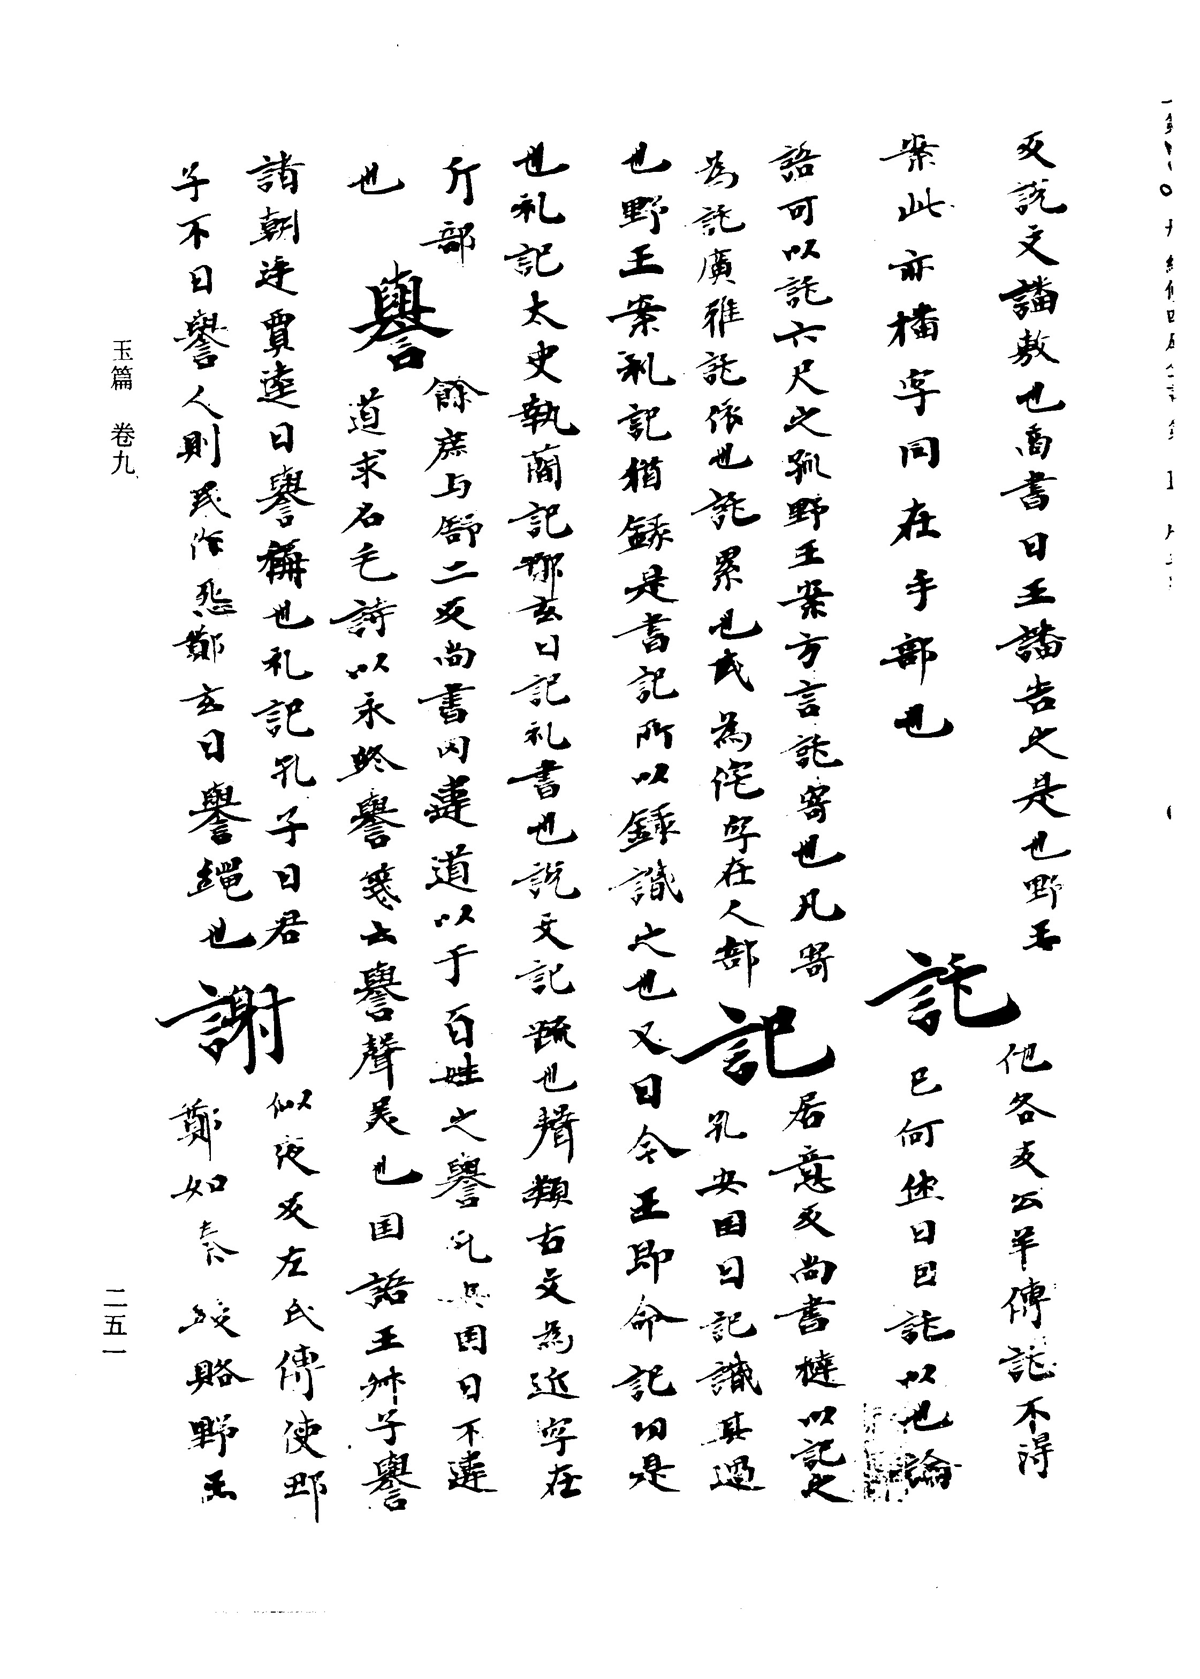 反說文譒敷也商書曰王譒告之是也野王
案此亦播字同在手部也
託
他各反公羊傳託不得
已何休曰因託以也論
語可以託六尺之孤野王案方言託寄也凡寄
為託廣雅託依也託累也或為侘字在人部
記
居意反尚書撻以記之
孔安国曰記識其過
也野王案礼記猶録是書記所以録識之也又曰今王即命記功是
也礼記太史執蕳記鄭玄曰記礼書也說文記䟽也聲類古文為近字在
丌部
也
譽
餘庶与舒二反尚書罔違道以于百姓之譽孔安国曰不違
道求名毛詩以永終譽箋云譽聲美也国語王升子譽
諸朝賈逵曰譽稱也礼記孔子曰君
子不曰譽人則民作忠鄭玄曰譽繩也
謝
似夜反左氏傳使
鄭如秦賂野王
玉篇 卷九
二五一